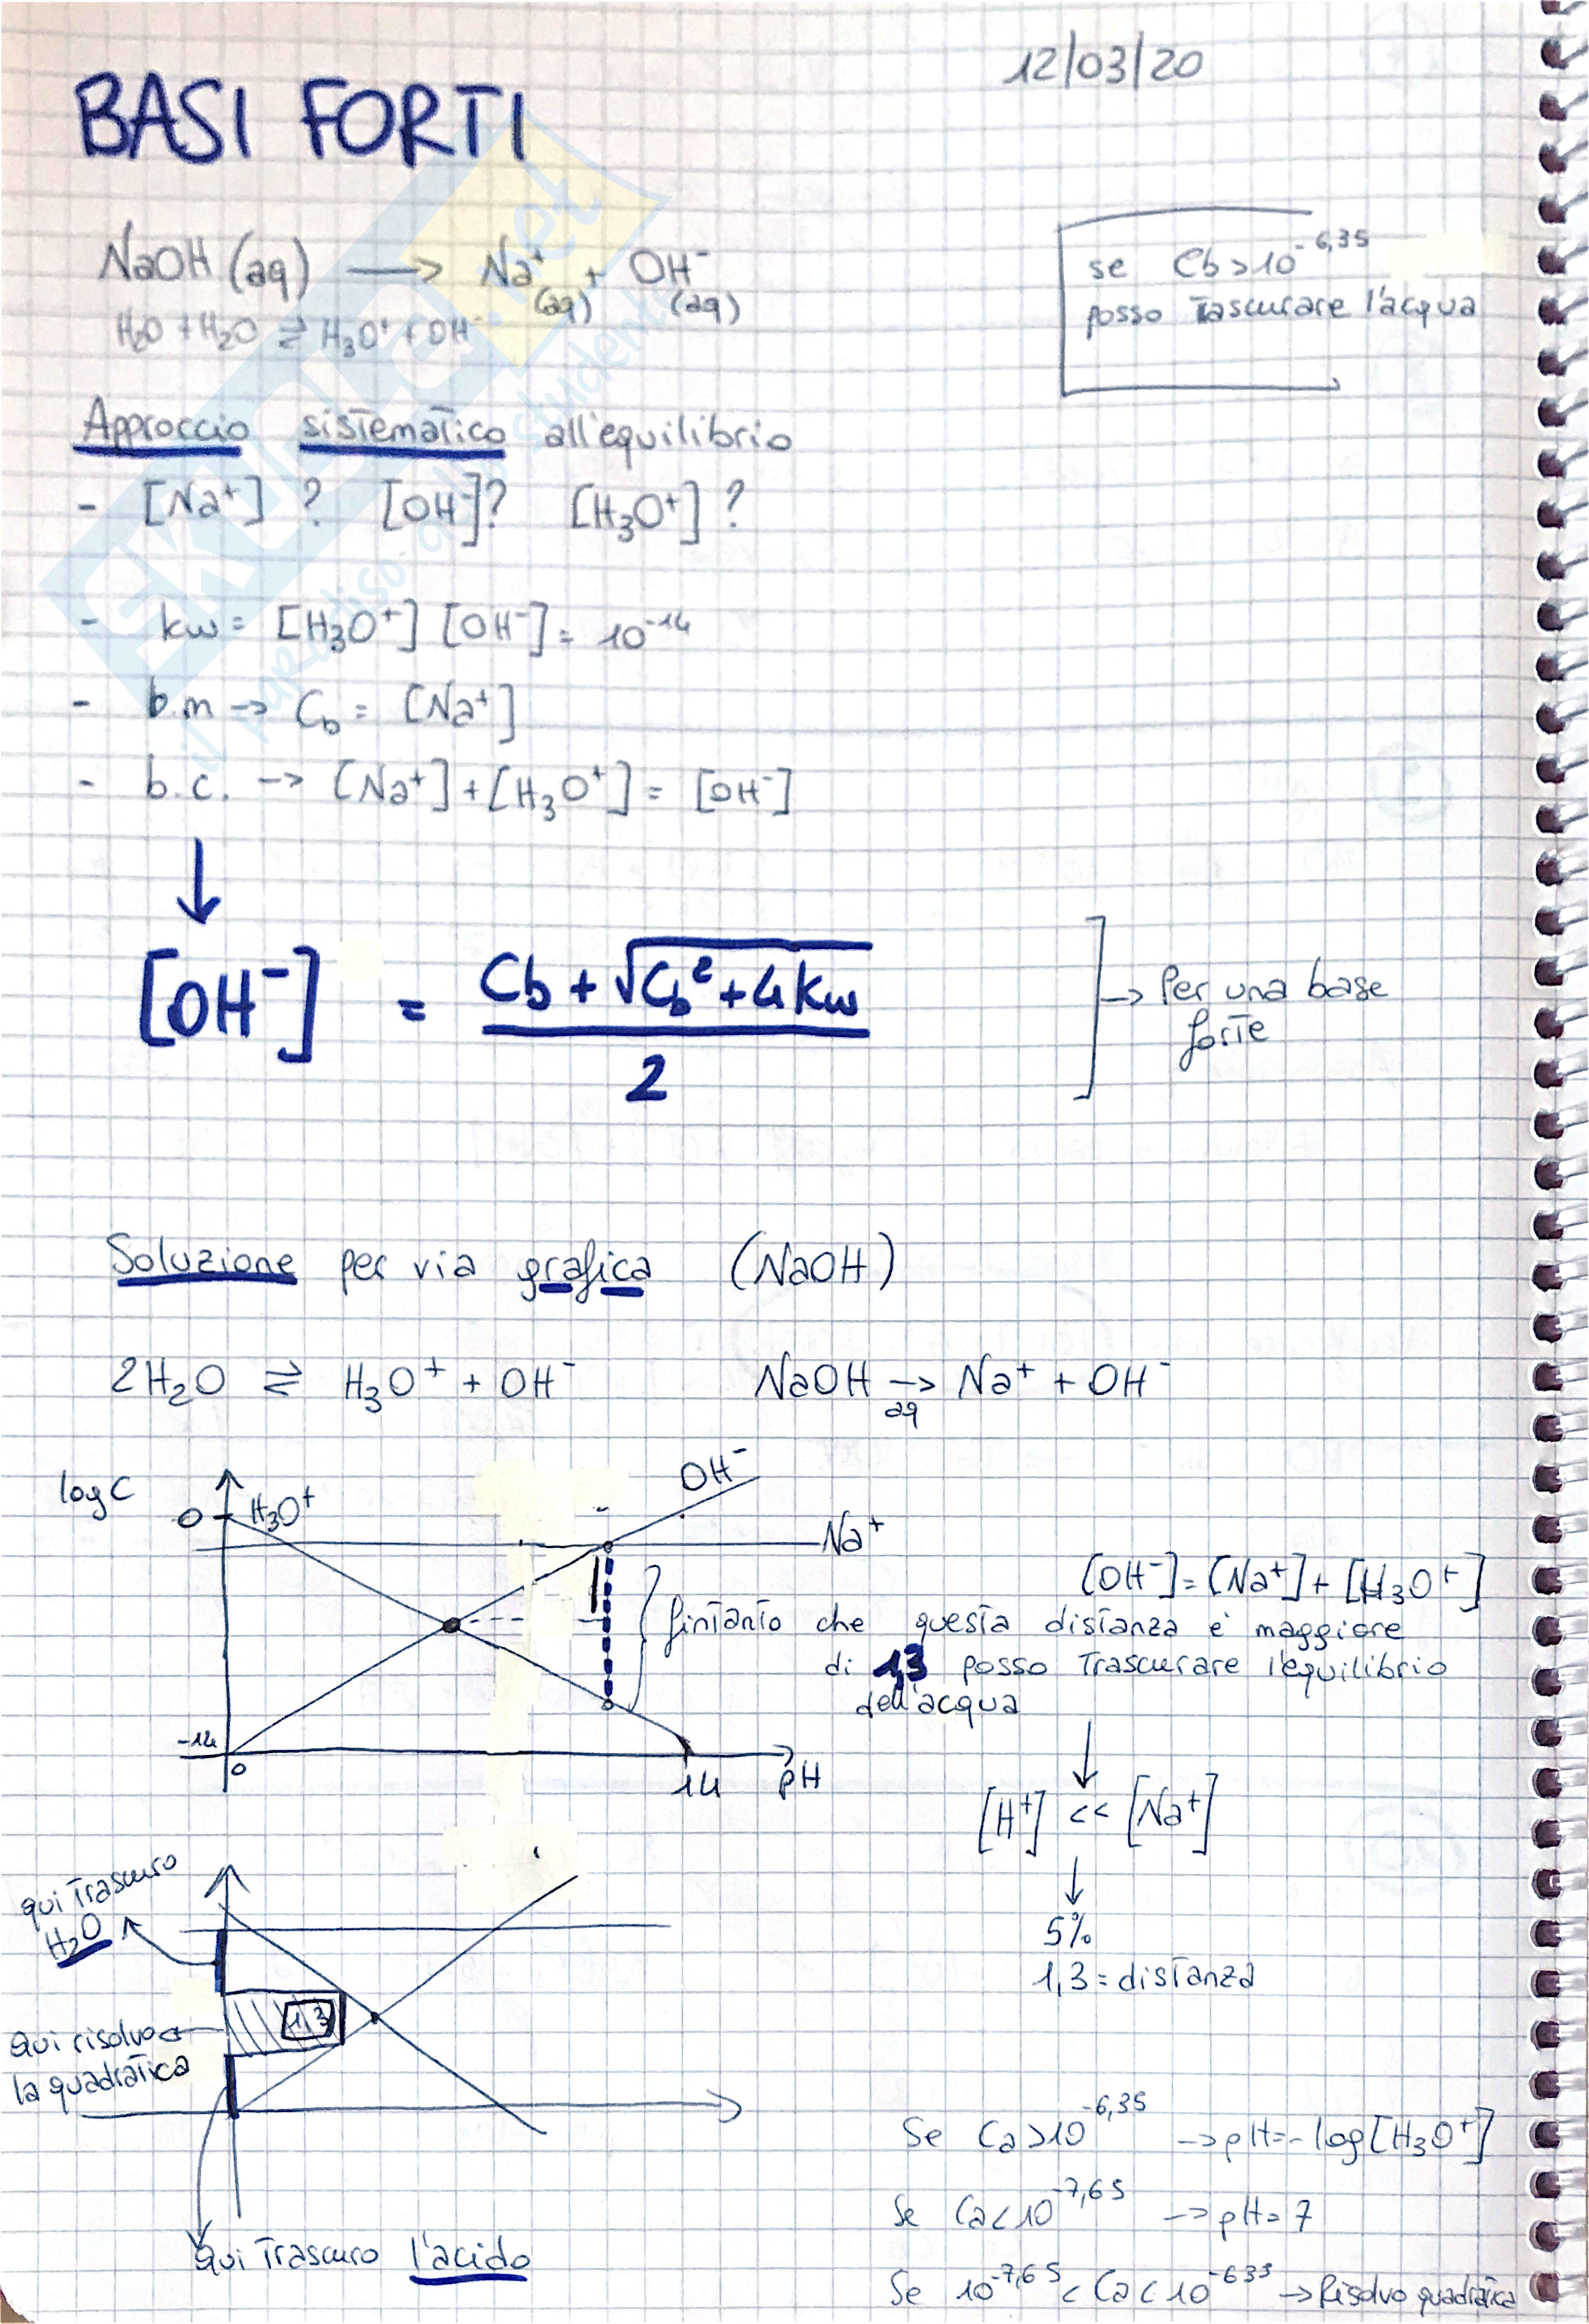 12/03/20
BASI FORTI
NaOH (aq) → Na⁺(aq) + OH⁻(aq)
H₂O + H₂O ⇄ H₃O⁺ + OH⁻
se Cb > 10^-6,35
posso Trascurare l'acqua
Approccio sistematico all'equilibrio
- [Na⁺] ? [OH⁻]? [H₃O⁺] ?
- kw = [H₃O⁺] [OH⁻] = 10^-14
- b.m → Cb = [Na⁺]
- b.c. → [Na⁺] + [H₃O⁺] = [OH⁻]
↓
[OH⁻] = (Cb + √(Cb² + 4 kw)) / 2
→ Per una base
forte
Soluzione per via grafica (NaOH)
2H₂O ⇄ H₃O⁺ + OH⁻ NaOH →aq Na⁺ + OH⁻
log C
0 H₃O⁺
OH⁻
Na⁺
-14
0
14 pH
[OH⁻] = [Na⁺] + [H₃O⁺]
fintanto che questa distanza è maggiore
di 1,3 posso Trascurare l'equilibrio
dell'acqua
↓
[H⁺] << [Na⁺]
↓
5%
1,3 = distanza
qui Trascuro
H₂O
1,3
Qui risolvo
la quadratica
Qui Trascuro l'acido
Se Ca > 10^-6,35 → pH = - log [H₃O⁺]
Se Ca < 10^-7,65 → pH = 7
Se 10^-7,65 < Ca < 10^-635 → Risolvo quadratica
SKUOLA.net
il paradiso dello studente